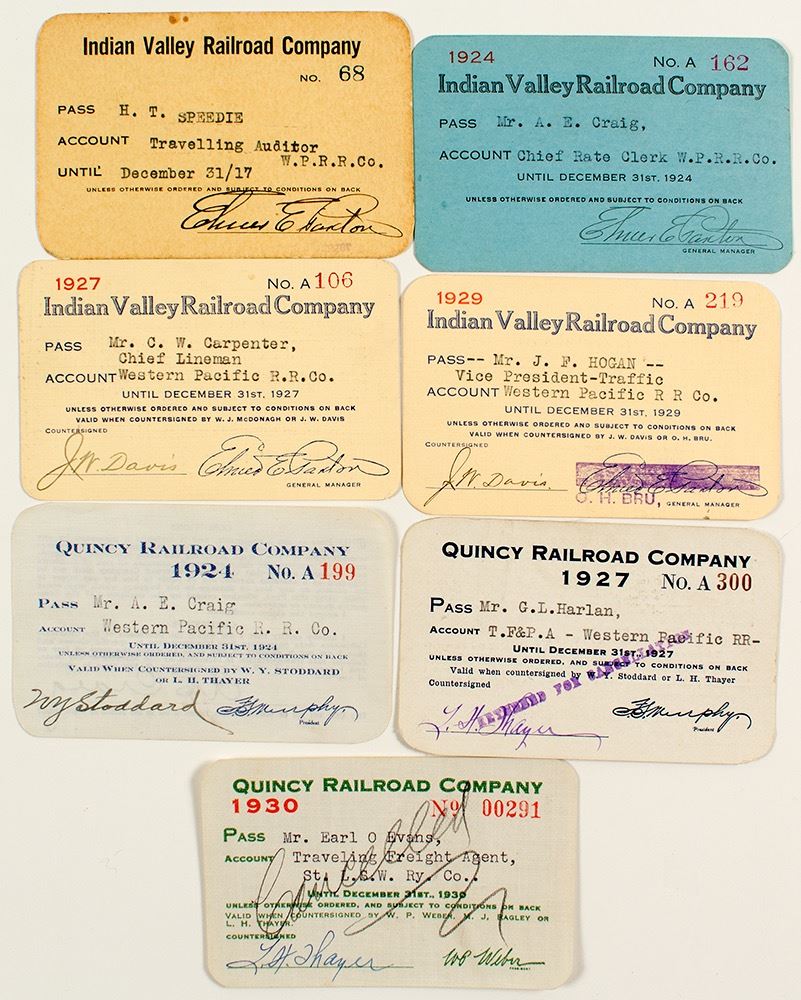 Indian Valley Railroad Company
NO. 68
PASS H. T. SPEEDIE
ACCOUNT Travelling Auditor
W.P.R.R.Co.
UNTIL December 31/17
UNLESS OTHERWISE ORDERED AND SUBJECT TO CONDITIONS ON BACK
Elmer E. Paxton
1924 No. A 162
Indian Valley Railroad Company
PASS Mr. A. E. Craig,
ACCOUNT Chief Rate Clerk W.P.R.R.Co.
UNTIL DECEMBER 31ST, 1924
UNLESS OTHERWISE ORDERED AND SUBJECT TO CONDITIONS ON BACK
Elmer E. Paxton
GENERAL MANAGER
1927 No. A 106
Indian Valley Railroad Company
PASS Mr. C. W. Carpenter,
Chief Lineman
ACCOUNT Western Pacific R.R.Co.
UNTIL DECEMBER 31ST, 1927
UNLESS OTHERWISE ORDERED AND SUBJECT TO CONDITIONS ON BACK
VALID WHEN COUNTERSIGNED BY W. J. McDONAGH OR J. W. DAVIS
COUNTERSIGNED
J.W. Davis Elmer E. Paxton
GENERAL MANAGER
1929 No. A 219
Indian Valley Railroad Company
PASS-- Mr. J. F. HOGAN --
Vice President-Traffic
ACCOUNT Western Pacific R R Co.
UNTIL DECEMBER 31ST, 1929
UNLESS OTHERWISE ORDERED AND SUBJECT TO CONDITIONS ON BACK
VALID WHEN COUNTERSIGNED BY J. W. DAVIS OR O. H. BRU.
COUNTERSIGNED
J.W. Davis. Elmer E. Paxton
O. H. BRU, GENERAL MANAGER
QUINCY RAILROAD COMPANY
1924 No. A 199
PASS Mr. A. E. Craig
ACCOUNT Western Pacific R. R. Co.
UNTIL DECEMBER 31ST, 1924
UNLESS OTHERWISE ORDERED, AND SUBJECT TO CONDITIONS ON BACK
VALID WHEN COUNTERSIGNED BY W. Y. STODDARD
OR L. H. THAYER
WY Stoddard Murphy.
President
QUINCY RAILROAD COMPANY
1927 No. A 300
PASS Mr. G.L.Harlan,
ACCOUNT T.F&P.A - Western Pacific RR-
UNTIL DECEMBER 31ST, 1927
UNLESS OTHERWISE ORDERED, AND SUBJECT TO CONDITIONS ON BACK
Valid when countersigned by W. Y. Stoddard or L. H. Thayer
Countersigned
FOR CANCELLATION
L. H. Thayer Murphy.
President
QUINCY RAILROAD COMPANY
1930 No 00291
PASS Mr. Earl O Evans,
ACCOUNT Traveling Freight Agent,
St. L.S.W. Ry. Co..
UNTIL DECEMBER 31ST., 1930
UNLESS OTHERWISE ORDERED, AND SUBJECT TO CONDITIONS ON BACK
VALID WHEN COUNTERSIGNED BY W. P. WEBER, M. J. BAGLEY OR
L. H. THAYER.
COUNTERSIGNED
Cancelled
L. H. Thayer WP Weber